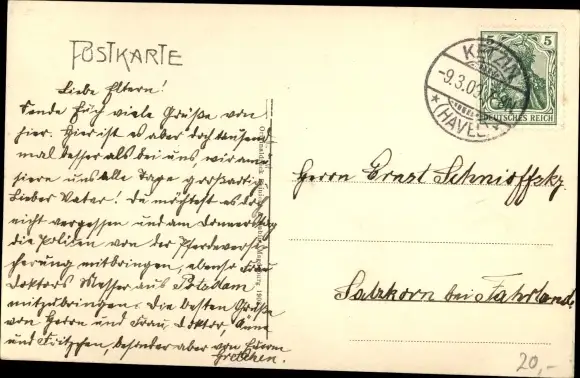 POSTKARTE
Liebe Eltern!
Sende Euch viele Grüße von
hier. Hier ist es aber doch tausend
mal besser als bei uns wir amü
sieren uns alle Tage großartig.
Lieber Vater! Du möchtest es doch
nicht vergessen und am Donnerstag
die Policen von der Pferdeversi-
cherung mitbringen, ebenso Frau
Doktors Messer aus Potsdam
mitzubringen. Die besten Grüße
von Herrn und Frau Doktor
und Fritzchen, besonder aber von Eurem
Gretchen.
5
DEUTSCHES REICH
KETZIN
-9.3.0
* (HAVEL)
Herrn Ernst Schnioffsky
Satzkorn bei Fahrland.
20,-